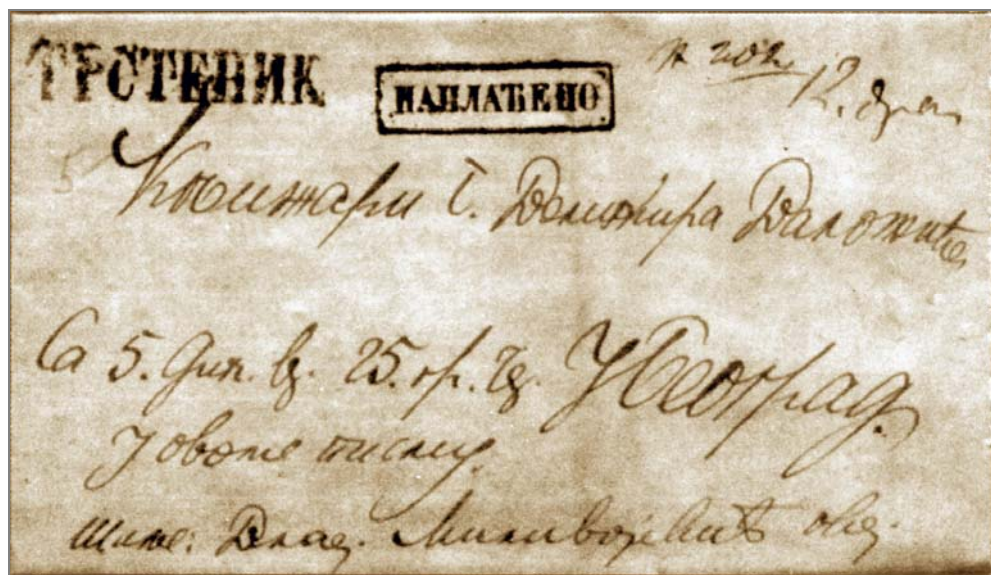 ТРСТЕНИК
НАПЛАЋЕНО
202
12.
Књижари Г. Велимира Валожића
Са 5. дин. 25. гр.
У Београд.
У овоме писму.
Шиље: Влад. Миливојевић